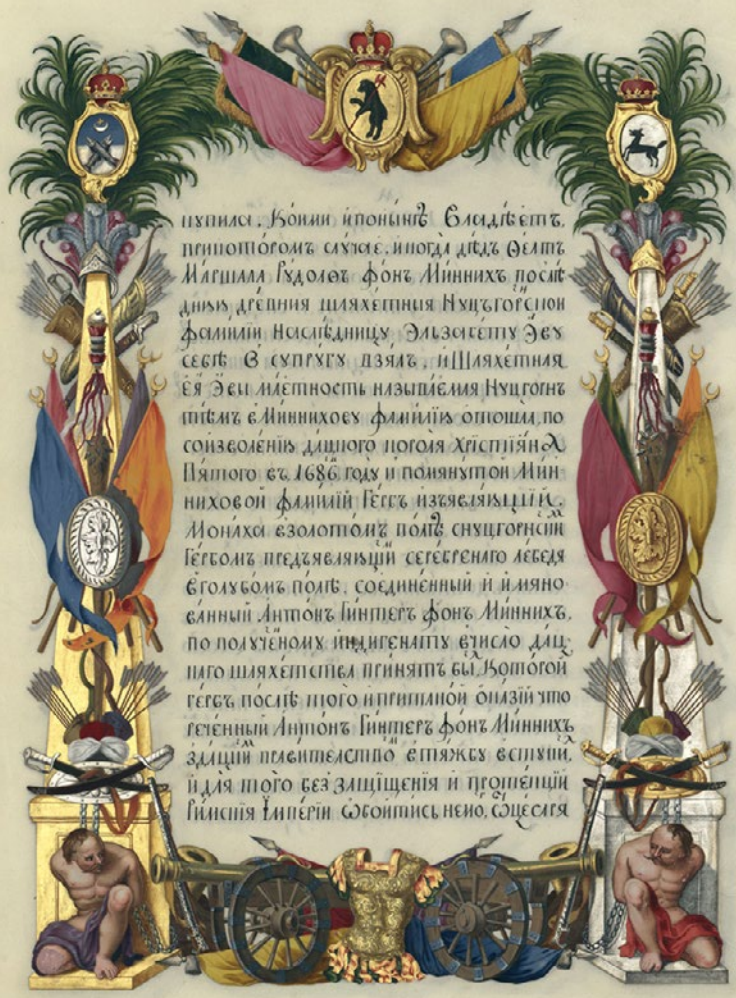 купила. Коими ипонынѣ Владѣетъ,
прикоторомъ случае, икогда дѣдъ Фелтъ
Маршала Рудолѳъ фонъ Миннихъ послѣ
днюю древния шляхетныя Нуцъгорнской
фамилии Наслѣдницу Эльзабету Эву
себѣ В супругу взялъ, и Шляхетная
ея Эвы маетность называемая Нуцгорнъ
тѣмъ в Миннихову фамилию отошла, по
соизволению дацкого короля Християна
Пятого въ 1686 году и помянутой Мин-
ниховой фамилии Гербъ изъявляющий
Монаха взолотомъ полѣ снуцгорнским
Гербомъ предъявляющий серебреного лебедя
вголубомъ полѣ, соединенный и имяно-
ванный Антонъ Гинтеръ фонъ Миннихъ,
по полученому индигенату вчисло дац-
каго шляхетства принятъ бы. Которой
гербъ послѣ того и притакой оказии что
реченный Антонъ Гинтеръ фонъ Миннихъ
здацким правителством втяжбу вступил,
и для того без защищения и протенции
Римския Империи ѿбойтись немог, ѿцесаря